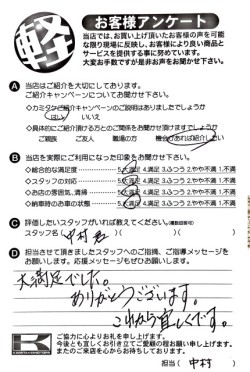 軽
お客様アンケート
当店では、お買い上げ頂いたお客様の声を可能
な限り現場に反映し、お客様により良い商品と
サービスを提供する事に努めています。
大変お手数ですが是非お声をお聞かせ下さい。
A 当店はご紹介を大切にしてあります。
ご紹介キャンペーンについてお聞かせ下さい。
◇カミタケご紹介キャンペーンのご説明はありましたでしょうか
はい いいえ
◇具体的にご紹介頂ける方とのご関係をお聞かせ頂けますでしょうか
ご親族 ご友人 職場の方 機会があれば紹介したい
B 当店を実際にご利用になった印象をお聞かせ下さい。
◇総合的な満足度 5.大満足 4.満足 3.ふつう 2.やや不満 1.不満
◇スタッフの対応 5.大満足 4.満足 3.ふつう 2.やや不満 1.不満
◇お店の雰囲気、清掃 5.大満足 4.満足 3.ふつう 2.やや不満 1.不満
◇納車時のお車の状態 5.大満足 4.満足 3.ふつう 2.やや不満 1.不満
C 評価したいスタッフがいれば教えてください。(複数回答可)
スタッフ名( 中村君 )
D 担当させて頂きましたスタッフへのご指摘、ご指導メッセージを
お願いします。応援メッセージもぜひお願いします。
大満足でした。
ありがとうございます。
これからも宜しくです。
ご協力に心よりお礼を申し上げます。
今後とも宜しくお引き立てご愛顧の程お願い申し上げます。
またのご来店を心からお待ちしております。
担当( 中村 )